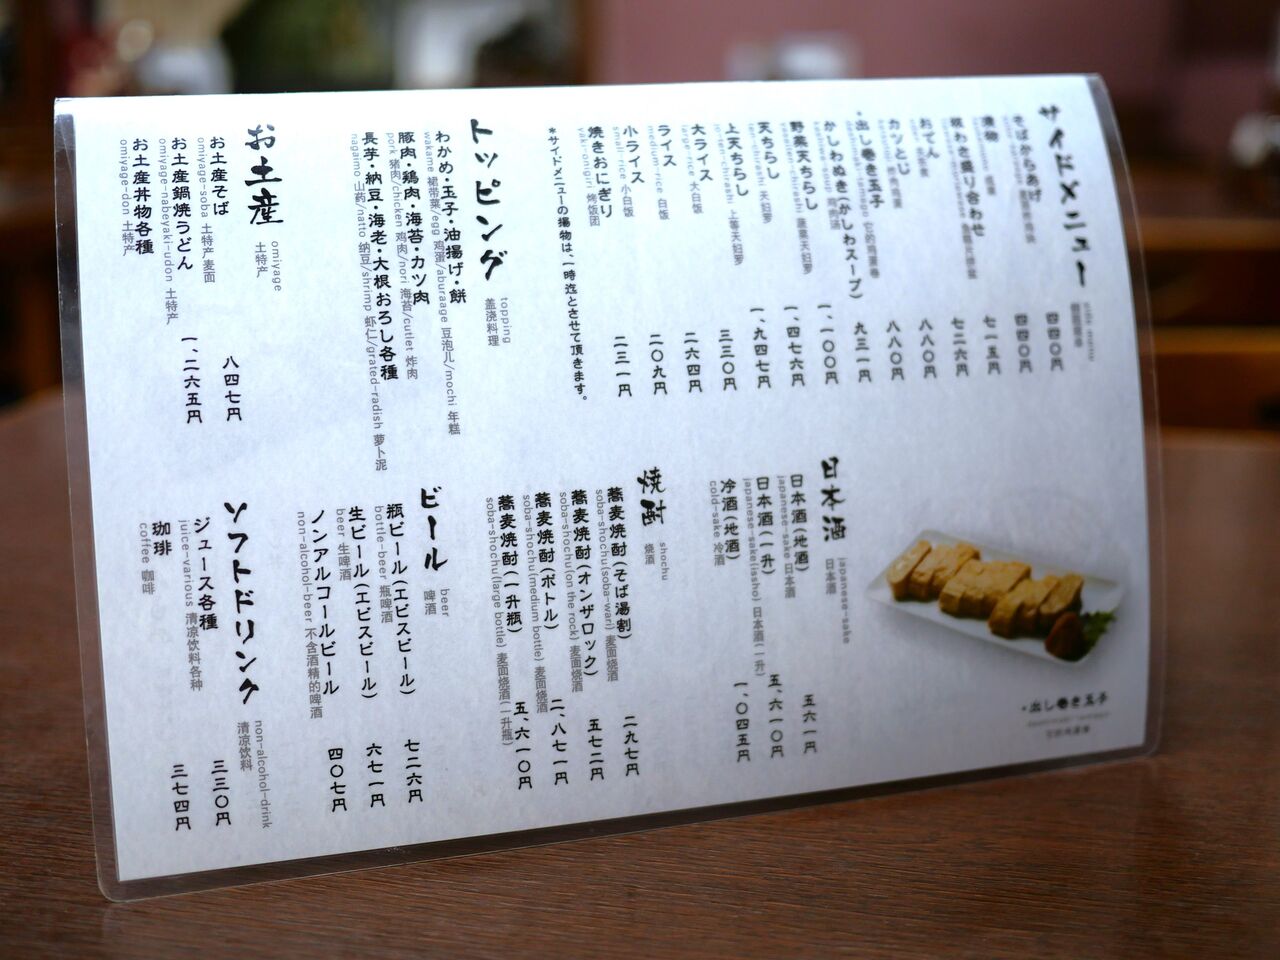 サイドメニュー
side menu
そばからあげ
四四〇円
四四〇円
漬物
七一五円
板わさ盛り合わせ
七二六円
おでん
八八〇円
カツとじ
八八〇円
・出し巻き玉子
九三一円
かしわぬき(かしわスープ)
kashiwa-soup 鸡肉汤
一、一〇〇円
野菜天ちらし
yasai-ten-chirashi 蔬菜天妇罗
一、四七六円
天ちらし
ten-chirashi 天妇罗
一、九四七円
上天ちらし
jo-ten-chirashi 上等天妇罗
二三〇円
大ライス
large-rice 大白饭
二六四円
ライス
medium-rice 白饭
二〇九円
小ライス
small-rice 小白饭
二三一円
焼きおにぎり
yaki-onigiri 烤饭团
*サイドメニューの揚物は、一時迄とさせて頂きます。
トッピング
topping
盖浇料理
わかめ・玉子・油揚げ・餅
wakame 裙带菜/egg 鸡蛋/aburaage 豆泡儿/mochi 年糕
豚肉・鶏肉・海苔・カツ肉
pork 猪肉/chicken 鸡肉/nori 海苔/cutlet 炸肉
長芋・納豆・海老・大根おろし各種
nagaimo 山药/natto 纳豆/shrimp 虾仁/grated-radish 萝卜泥
お土産
omiyage
土特产
お土産そば
omiyage-soba 土特产麦面
八四七円
お土産鍋焼うどん
omiyage-nabeyaki-udon 土特产
一、二六五円
お土産丼物各種
omiyage-don 土特产
・出し巻き玉子
日本酒
japanese-sake
日本酒
日本酒(地酒)
japanese-sake 日本酒
五六一円
日本酒(一升)
japanese-sake(issho) 日本酒(一升)
五、六一〇円
冷酒(地酒)
cold-sake 冷酒
一、〇四五円
焼酎
shochu
烧酒
蕎麦焼酎(そば湯割)
soba-shochu(soba-wari) 麦面烧酒
二九七円
蕎麦焼酎(オンザロック)
soba-shochu(on the rock) 麦面烧酒
五七二円
蕎麦焼酎(ボトル)
soba-shochu(medium bottle) 麦面烧酒
二、八七一円
蕎麦焼酎(一升瓶)
soba-shochu(large bottle) 麦面烧酒(一升瓶)
五、六一〇円
ビール
beer
啤酒
瓶ビール(エビスビール)
bottle-beer 瓶啤酒
七二六円
生ビール(エビスビール)
beer 生啤酒
六七一円
ノンアルコールビール
non-alcohol-beer 不含酒精的啤酒
四〇七円
ソフトドリンク
non-alcohol-drink
清凉饮料
ジュース各種
juice-various 清凉饮料各种
三三〇円
珈琲
coffee 咖啡
三七四円